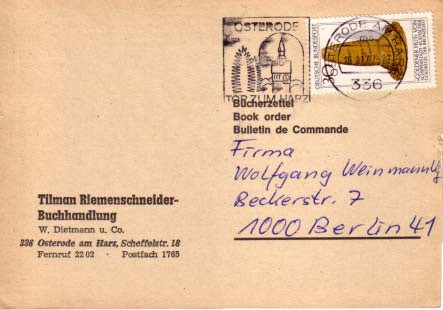 OSTERODE
TOR ZUM HARZ
336
DEUTSCHE BUNDESPOST
30
Bücherzettel
Book order
Bulletin de Commande
Firma
Wolfgang
Beckerstr. 7
1000 Berlin 41
Tilman Riemenschneider-
Buchhandlung
W. Dietmann u. Co.
336 Osterode am Harz, Scheffelstr. 18
Fernruf 22 02 · Postfach 1765